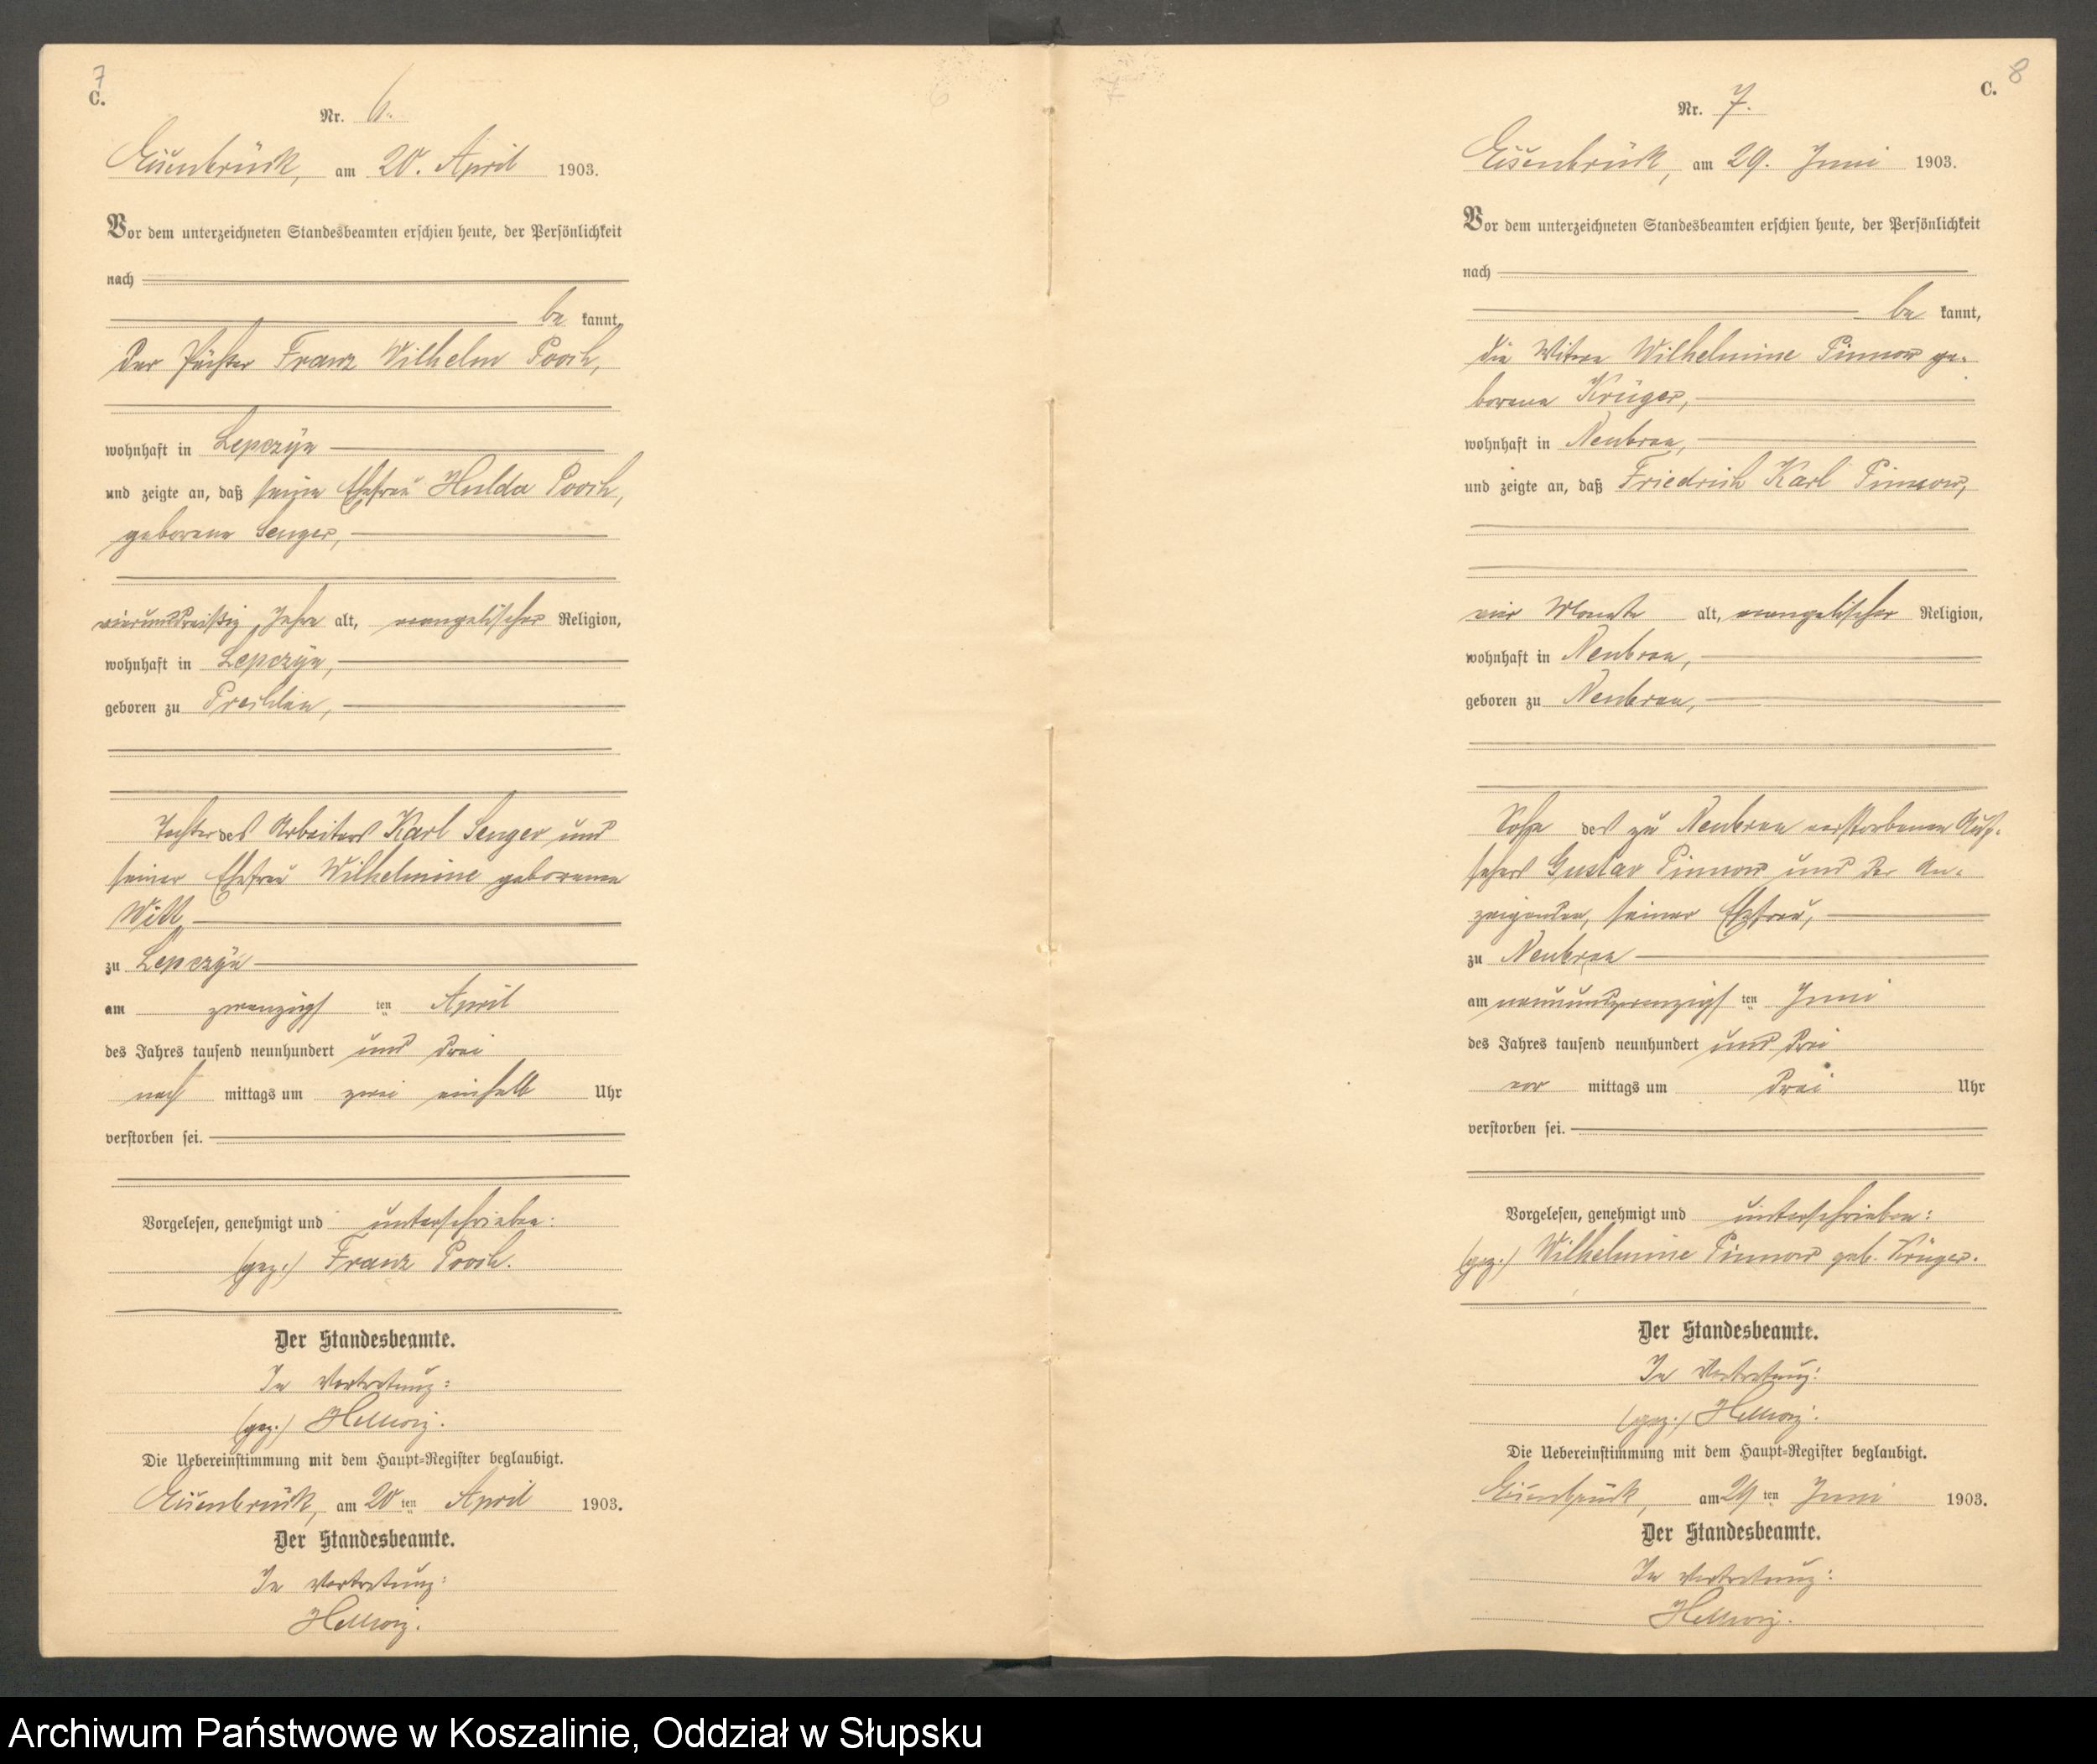 7
C.
Nr. 6.
Eisenbrück, am 20. April 1903.
Vor dem unterzeichneten Standesbeamten erschien heute, der Persönlichkeit
nach
be kannt,
der Pächter Franz Wilhelm Pooch,
wohnhaft in Lepczyn
und zeigte an, daß seine Ehefrau Hulda Pooch,
geborene Senger,
vierunddreißig Jahre alt, evangelischer Religion,
wohnhaft in Lepczyn,
geboren zu Prechlau,
Tochter des Arbeiters Karl Senger und
seiner Ehefrau Wilhelmine geborenen
Witt
zu Lepczyn
am zwanzigs ten April
des Jahres tausend neunhundert und drei
nach mittags um zwei einhalb Uhr
verstorben sei.
Vorgelesen, genehmigt und unterschrieben:
(gez.) Franz Pooch.
Der Standesbeamte.
In Vertretung:
(gez.) Hellwig.
Die Uebereinstimmung mit dem Haupt-Register beglaubigt.
Eisenbrück, am 20 ten April 1903.
Der Standesbeamte.
In Vertretung:
Hellwig.
8
C.
Nr. 7.
Eisenbrück, am 29. Juni 1903.
Vor dem unterzeichneten Standesbeamten erschien heute, der Persönlichkeit
nach
be kannt,
die Witwe Wilhelmine Pinnow ge-
borene Krüger,
wohnhaft in Neubraa,
und zeigte an, daß Friedrich Karl Pinnow,
vier Monate alt, evangelischer Religion,
wohnhaft in Neubraa,
geboren zu Neubraa,
Sohn des zu Neubraa verstorbenen Auf-
sehers Gustav Pinnow und der An-
zeigenden, seiner Ehefrau,
zu Neubraa
am neunundzwanzigs ten Juni
des Jahres tausend neunhundert und drei
vor mittags um drei Uhr
verstorben sei.
Vorgelesen, genehmigt und unterschrieben:
(gez.) Wilhelmine Pinnow geb. Krüger.
Der Standesbeamte.
In Vertretung:
(gez.) Hellwig.
Die Uebereinstimmung mit dem Haupt-Register beglaubigt.
Eisenbrück, am 29 ten Juni 1903.
Der Standesbeamte.
In Vertretung:
Hellwig.
Archiwum Państwowe w Koszalinie, Oddział w Słupsku